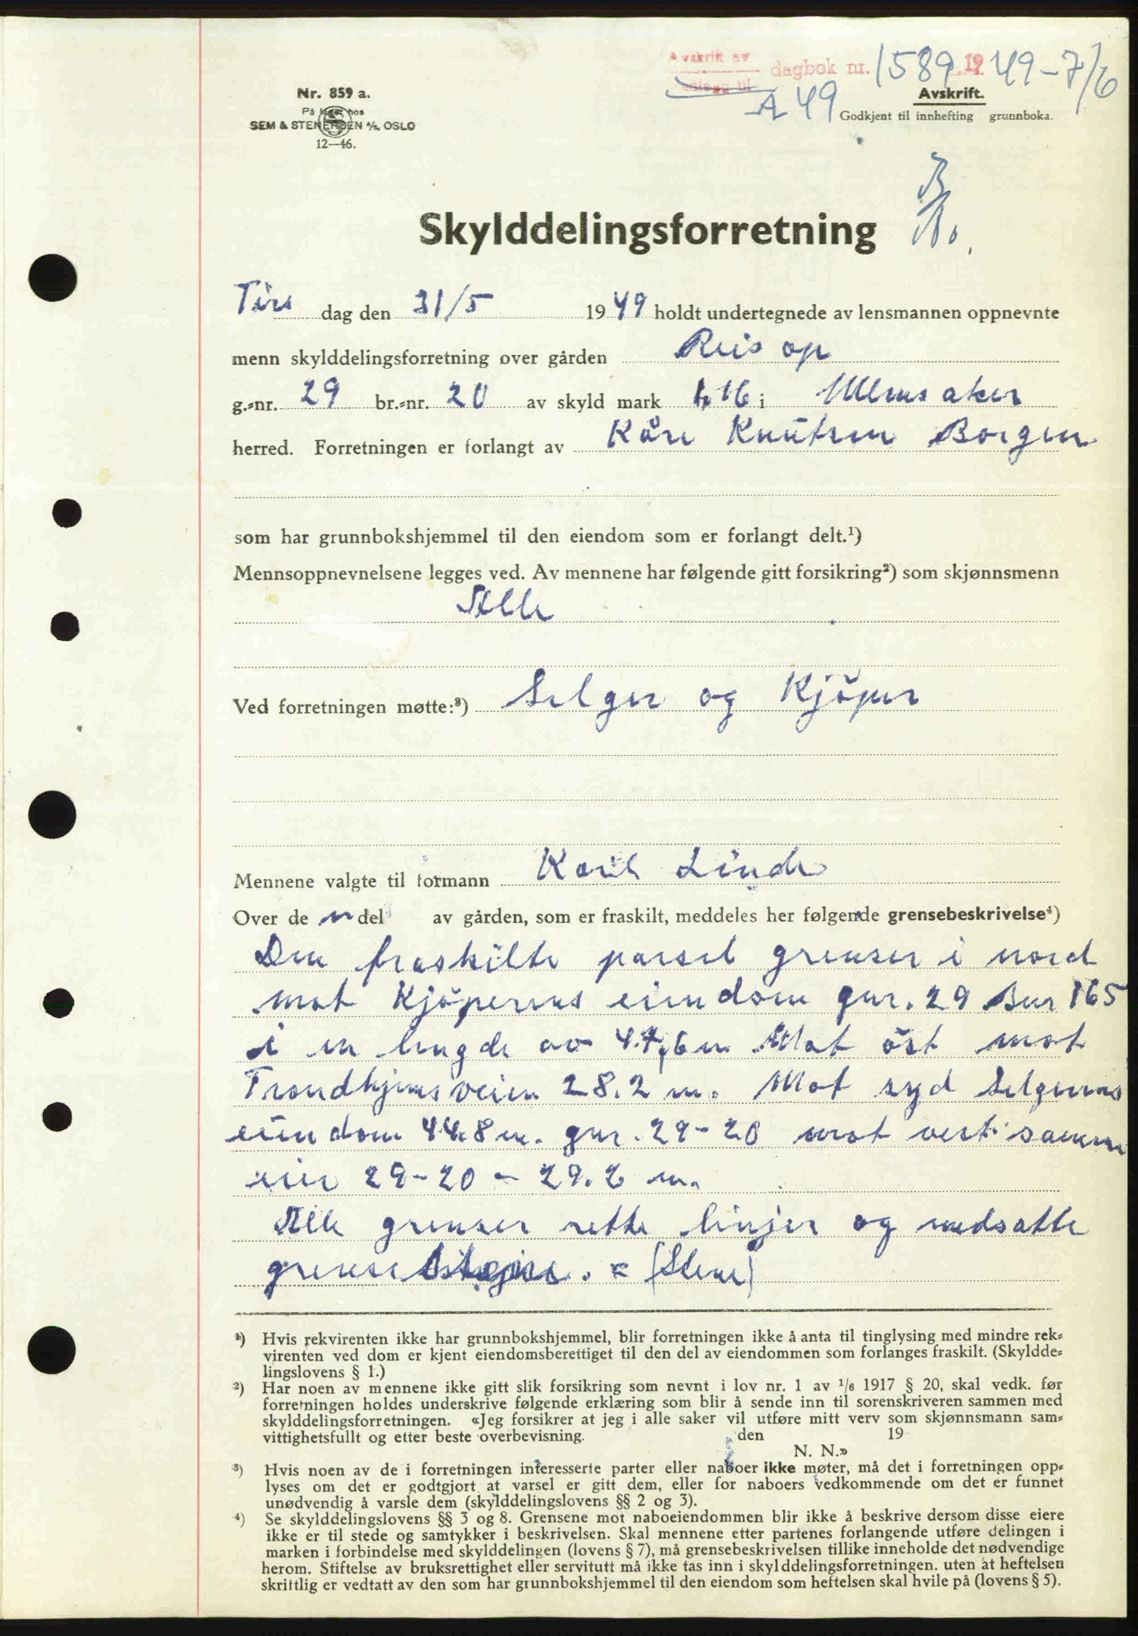 Avskrift av dagbok nr. 1589 1949-7/6
A 49
Avskrift.
Godkjent til innhefting grunnboka.
Nr. 859 a.
På lager hos
SEM & STENERSEN A/S, OSLO
12—46.
Skylddelingsforretning
Tirs dag den 31/5 1949 holdt undertegnede av lensmannen oppnevnte
menn skylddelingsforretning over gården Reisop
g.-nr. 29 br.-nr. 20 av skyld mark 1,16 i Ullensaker
herred. Forretningen er forlangt av Kåre Knutsen Borgen
som har grunnbokshjemmel til den eiendom som er forlangt delt.¹)
Mennsoppnevnelsene legges ved. Av mennene har følgende gitt forsikring²) som skjønnsmenn
Alle
Ved forretningen møtte:³) Selger og Kjöper
Mennene valgte til formann Karl Linde
Over de n del av gården, som er fraskilt, meddeles her følgende grensebeskrivelse⁴)
Den fraskilte parsel grenser i nord
mot Kjöperens eiendom gnr. 29 Bnr 165
i en lengde av 44,6 m Mot öst mot
Trondhjemsveien 28.2 m. Mot syd Selgerens
eiendom 44.8 m. gnr. 29-20 mot vest samme
eier 29-20 - 29.6 m.
Alle grenser rette linjer og nedsatte
grense . = (Stene)
¹) Hvis rekvirenten ikke har grunnbokshjemmel, blir forretningen ikke å anta til tinglysing med mindre rek-
virenten ved dom er kjent eiendomsberettiget til den del av eiendommen som forlanges fraskilt. (Skyldde-
lingslovens § 1.)
²) Har noen av mennene ikke gitt slik forsikring som nevnt i lov nr. 1 av 1/6 1917 § 20, skal vedk. før
forretningen holdes underskrive følgende erklæring som blir å sende inn til sorenskriveren sammen med
skylddelingsforretningen. «Jeg forsikrer at jeg i alle saker vil utføre mitt verv som skjønnsmann sam-
vittighetsfullt og etter beste overbevisning. den 19
N. N.»
³) Hvis noen av de i forretningen interesserte parter eller naboer ikke møter, må det i forretningen opp-
lyses om det er godtgjort at varsel er gitt dem, eller for naboers vedkommende om det er funnet
unødvendig å varsle dem (skylddelingslovens §§ 2 og 3).
⁴) Se skylddelingslovens §§ 3 og 8. Grensene mot naboeiendommen blir ikke å beskrive dersom disse eiere
ikke er til stede og samtykker i beskrivelsen. Skal mennene etter partenes forlangende utføre delingen i
marken i forbindelse med skylddelingen (lovens § 7), må grensebeskrivelsen tillike inneholde det nødvendige
herom. Stiftelse av bruksrettighet eller servitutt må ikke tas inn i skylddelingsforretningen. uten at heftelsen
skriftlig er vedtatt av den som har grunnbokshjemmel til den eiendom som heftelsen skal hvile på (lovens § 5).